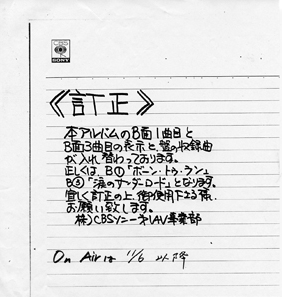 CBS
SONY
《訂正》
本アルバムのB面1曲目と
B面3曲目の表示と、盤の収録曲
が入れ替わっております。
正しくは、B①「ボーン・トゥ・ラン」
B③「涙のサンダーロード」となります。
宜しく訂正の上、御使用下さる様、
お願い致します。
株)CBSソニー第1AV事業部
On Airは 11/6 以降